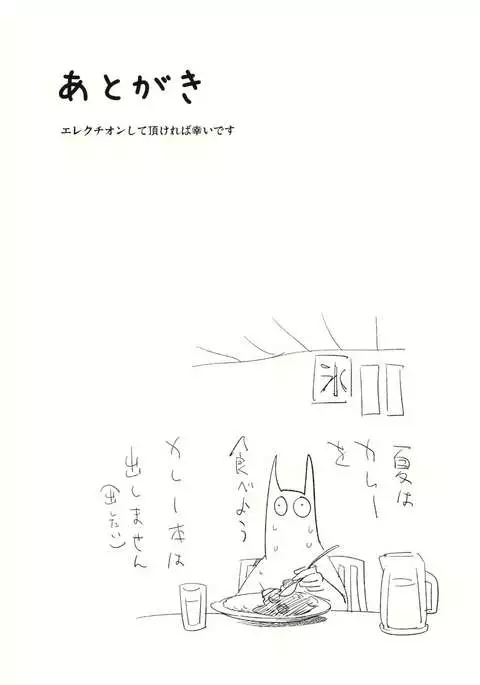 あとがき
エレクチオンして頂ければ幸いです
氷
夏は
カレー
を
食べよう
カレー本は
出しません
(出したい)